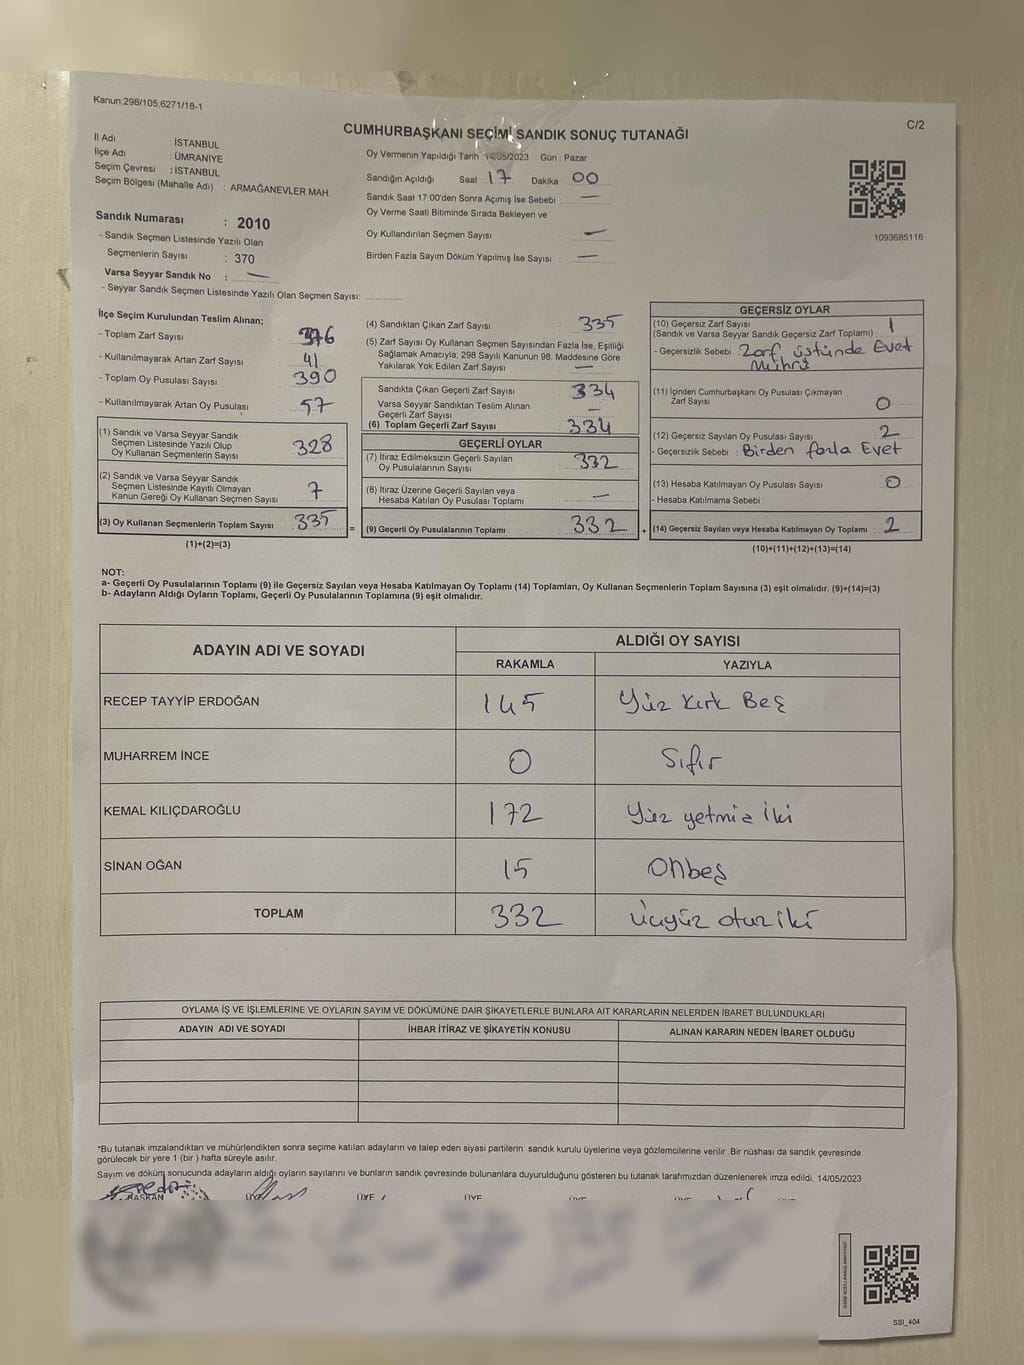 Kanun;298/105,6271/18-1
C/2
CUMHURBAŞKANI SEÇİMİ SANDIK SONUÇ TUTANAĞI
İl Adı : İSTANBUL
İlçe Adı : ÜMRANİYE
Seçim Çevresi : İSTANBUL
Seçim Bölgesi (Mahalle Adı) : ARMAĞANEVLER MAH.
Sandık Numarası : 2010
- Sandık Seçmen Listesinde Yazılı Olan
Seçmenlerin Sayısı : 370
Varsa Seyyar Sandık No : —
- Seyyar Sandık Seçmen Listesinde Yazılı Olan Seçmen Sayısı:
Oy Vermenin Yapıldığı Tarih 14/05/2023 Gün : Pazar
Sandığın Açıldığı Saat 17 Dakika 00
Sandık Saat 17:00'den Sonra Açımış İse Sebebi : —
Oy Verme Saati Bitiminde Sırada Bekleyen ve
Oy Kullandırılan Seçmen Sayısı —
Birden Fazla Sayım Döküm Yapılmış İse Sayısı : —
1093685116
İlçe Seçim Kurulundan Teslim Alınan;
- Toplam Zarf Sayısı 376
- Kullanılmayarak Artan Zarf Sayısı 41
- Toplam Oy Pusulası Sayısı 390
- Kullanılmayarak Artan Oy Pusulası 57
(1) Sandık ve Varsa Seyyar Sandık
Seçmen Listesinde Yazılı Olup
Oy Kullanan Seçmenlerin Sayısı 328
(2) Sandık ve Varsa Seyyar Sandık
Seçmen Listesinde Kayıtlı Olmayan
Kanun Gereği Oy Kullanan Seçmen Sayısı 7
(3) Oy Kullanan Seçmenlerin Toplam Sayısı 335 =
(1)+(2)=(3)
(4) Sandıktan Çıkan Zarf Sayısı 335
(5) Zarf Sayısı Oy Kullanan Seçmen Sayısından Fazla İse, Eşitliği
Sağlamak Amacıyla; 298 Sayılı Kanunun 98. Maddesine Göre
Yakılarak Yok Edilen Zarf Sayısı —
Sandıkta Çıkan Geçerli Zarf Sayısı 334
Varsa Seyyar Sandıktan Teslim Alınan
Geçerli Zarf Sayısı —
(6) Toplam Geçerli Zarf Sayısı 334
GEÇERLİ OYLAR
(7) İtiraz Edilmeksizin Geçerli Sayılan
Oy Pusulalarının Sayısı 332
(8) İtiraz Üzerine Geçerli Sayılan veya
Hesaba Katılan Oy Pusulası Toplamı —
(9) Geçerli Oy Pusulalarının Toplamı 332 +
GEÇERSİZ OYLAR
(10) Geçersiz Zarf Sayısı 1
(Sandık ve Varsa Seyyar Sandık Geçersiz Zarf Toplamı)
- Geçersizlik Sebebi Zarf üstünde Evet
Mührü
(11) İçinden Cumhurbaşkanı Oy Pusulası Çıkmayan
Zarf Sayısı 0
(12) Geçersiz Sayılan Oy Pusulası Sayısı 2
- Geçersizlik Sebebi : Birden fazla Evet
(13) Hesaba Katılmayan Oy Pusulası Sayısı 0
- Hesaba Katılmama Sebebi :
(14) Geçersiz Sayılan veya Hesaba Katılmayan Oy Toplamı : 2
(10)+(11)+(12)+(13)=(14)
NOT:
a- Geçerli Oy Pusulalarının Toplamı (9) ile Geçersiz Sayılan veya Hesaba Katılmayan Oy Toplamı (14) Toplamları, Oy Kullanan Seçmenlerin Toplam Sayısına (3) eşit olmalıdır. (9)+(14)=(3)
b- Adayların Aldığı Oyların Toplamı, Geçerli Oy Pusulalarının Toplamına (9) eşit olmalıdır.
ADAYIN ADI VE SOYADI
ALDIĞI OY SAYISI
RAKAMLA YAZIYLA
RECEP TAYYİP ERDOĞAN 145 Yüz Kırk Beş
MUHARREM İNCE 0 Sıfır
KEMAL KILIÇDAROĞLU 172 Yüz yetmiş iki
SİNAN OĞAN 15 Onbeş
TOPLAM 332 Üçyüz otuz iki
OYLAMA İŞ VE İŞLEMLERİNE VE OYLARIN SAYIM VE DÖKÜMÜNE DAİR ŞİKAYETLERLE BUNLARA AİT KARARLARIN NELERDEN İBARET BULUNDUKLARI
ADAYIN ADI VE SOYADI İHBAR İTİRAZ VE ŞİKAYETİN KONUSU ALINAN KARARIN NEDEN İBARET OLDUĞU
*Bu tutanak imzalandıktan ve mühürlendikten sonra seçime katılan adayların ve talep eden siyasi partilerin sandık kurulu üyelerine veya gözlemcilerine verilir. Bir nüshası da sandık çevresinde
görülecek bir yere 1 (bir ) hafta süreyle asılır.
Sayım ve döküm sonucunda adayların aldığı oyların sayılarını ve bunların sandık çevresinde bulunanlara duyurulduğunu gösteren bu tutanak tarafımızdan düzenlenerek imza edildi. 14/05/2023
BAŞKAN ÜYE ÜYE ÜYE
SSI_404